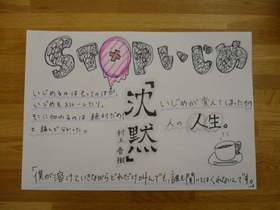 STOPいじめ
いじめるのはもってのほか。
いじめをスルーしたり、
それに加わるのは絶対だめだ
と読んで分かった。
「沈黙」
村上春樹
いじめが変えてしまった
人の人生。
「僕が溶けていきながらどれだけ叫んでも、誰も聞いてはくれないんです。」